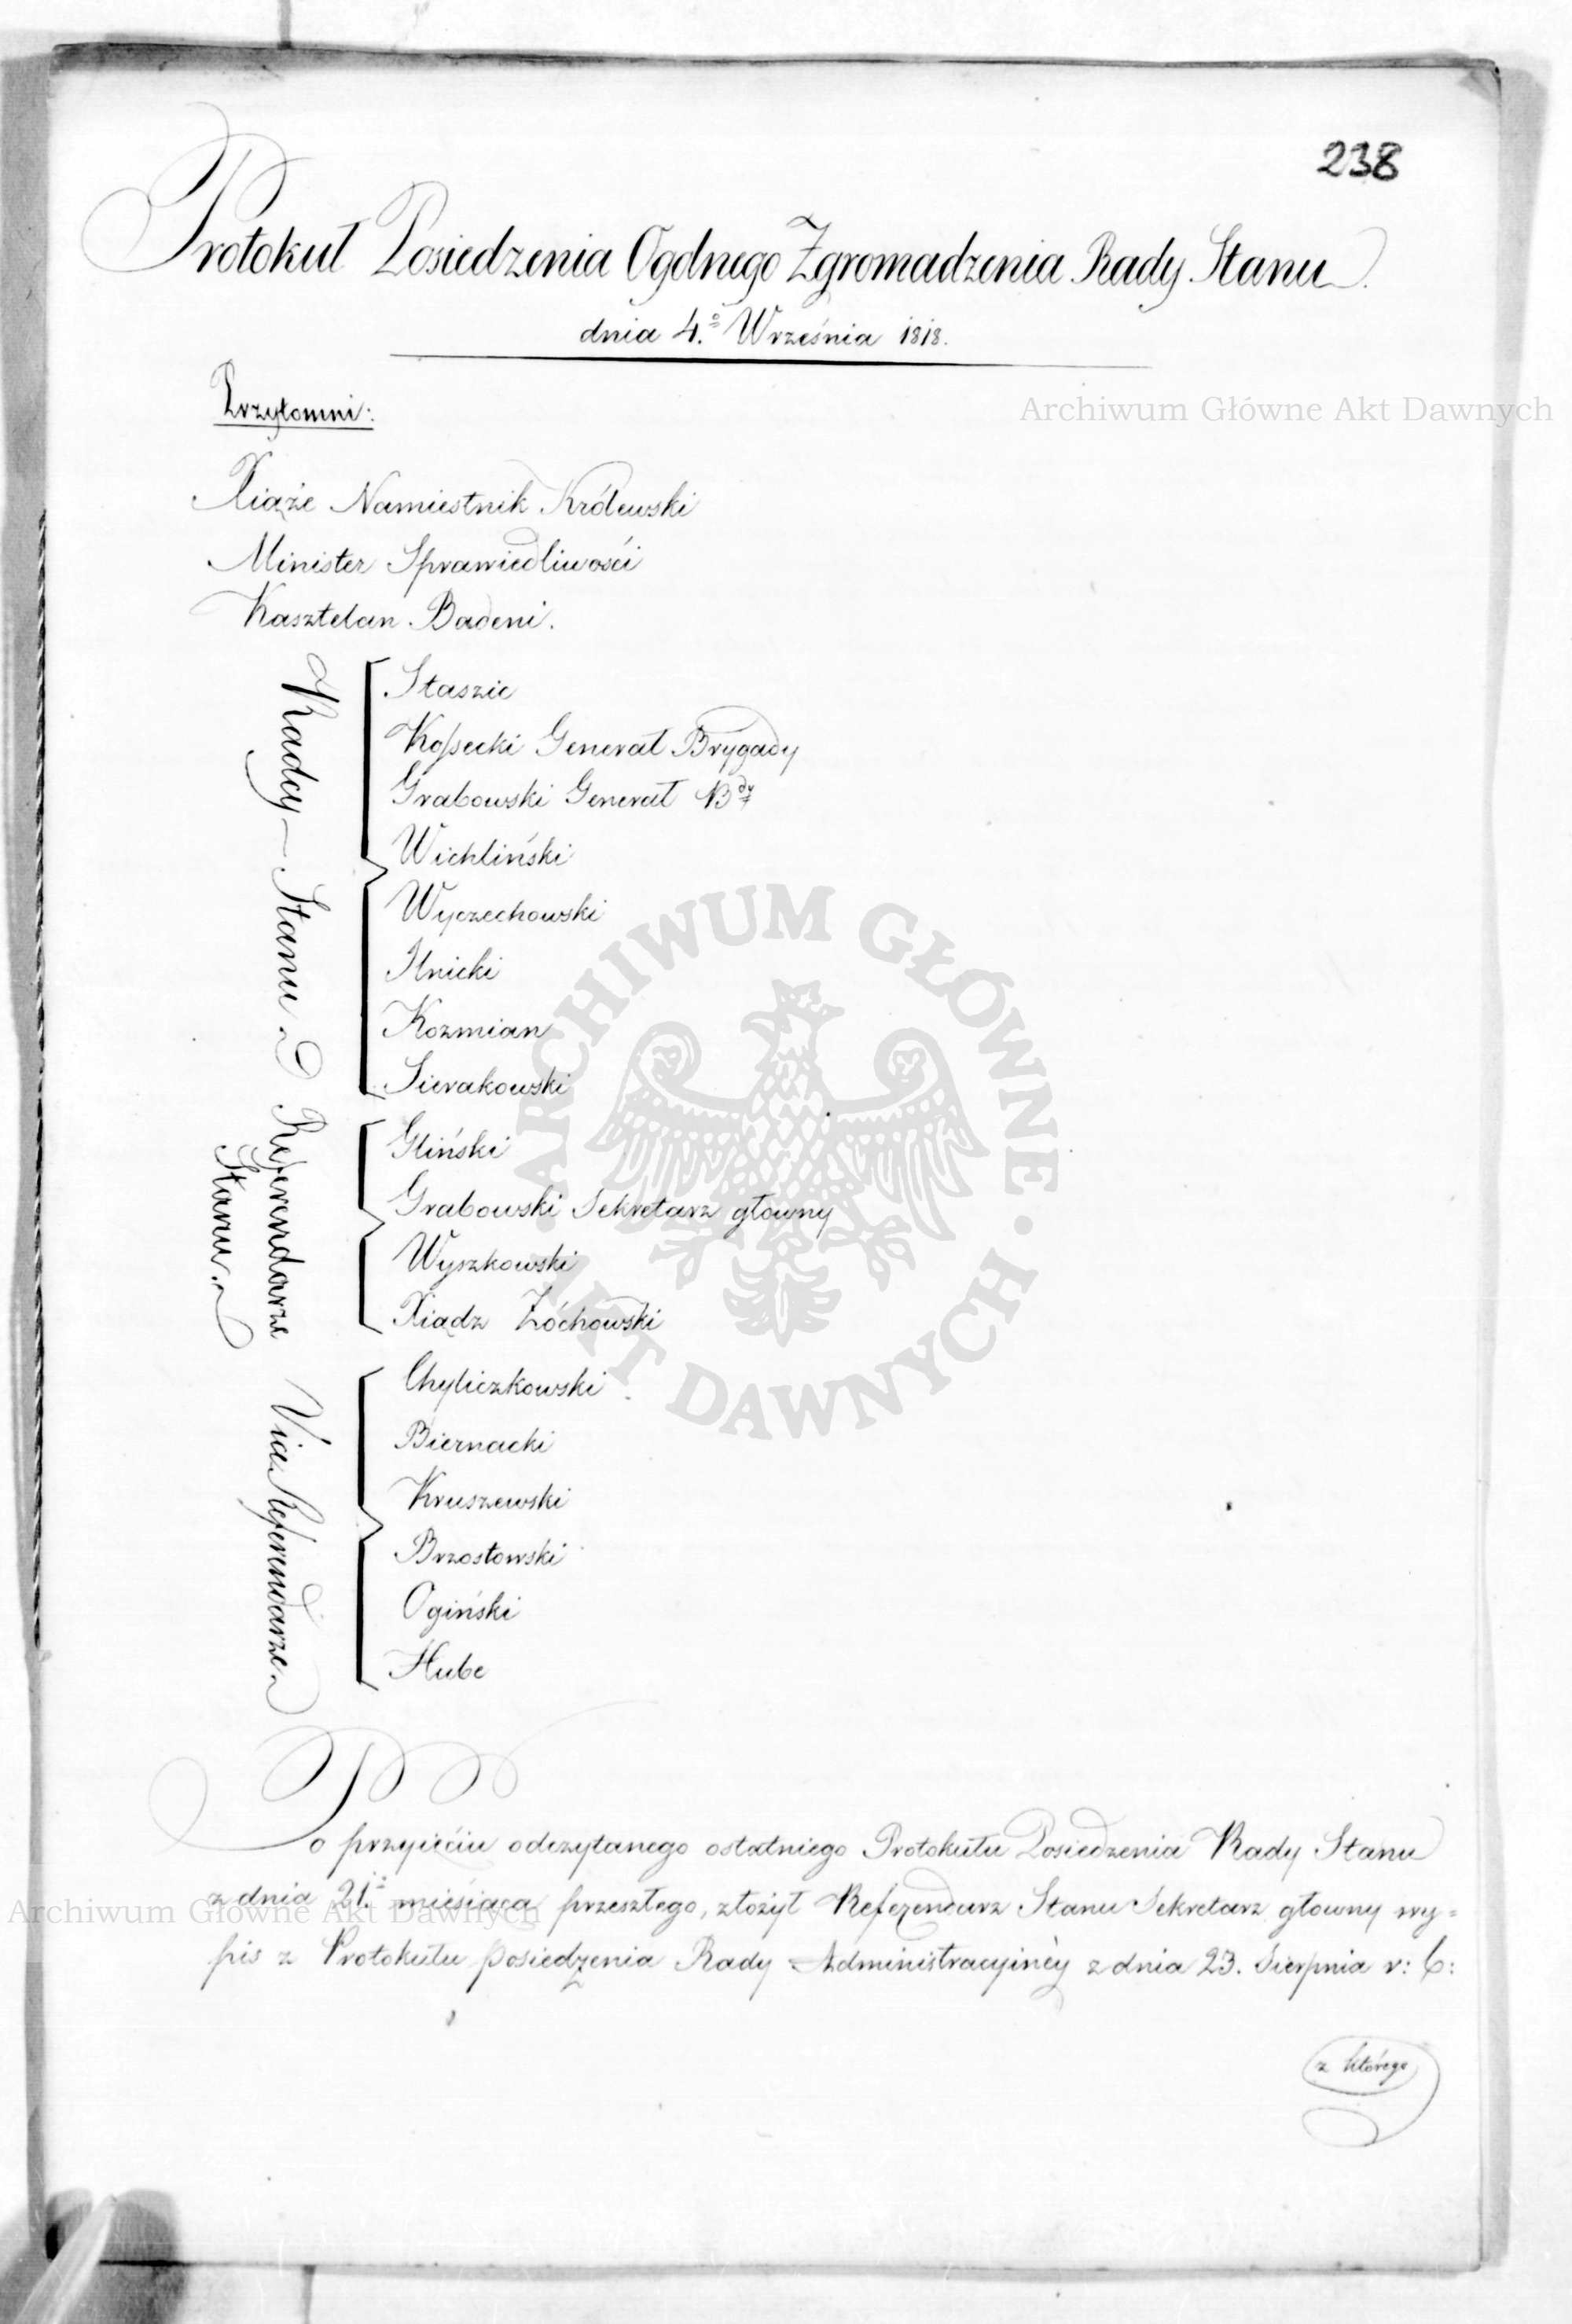 238
Protokuł Posiedzenia Ogolnego Zgromadzenia Rady Stanu.
dnia 4.º Września 1818.
Przytomni:
Archiwum Główne Akt Dawnych
Xiąże Namiestnik Królewski
Minister Sprawiedliwości
Kasztelan Badeni.
Radcy Stanu
Staszic
Kossecki Generał Brygady
Grabowski Generał Bdy
Wichliński
Wyczechowski
Ilnicki
Kozmian
Sierakowski
Referendarze
Stanu
Gliński
Grabowski Sekretarz głowny
Wyszkowski
Xiądz Żóchowski
Vice Referendarze
Chyliczkowski
Biernacki
Kruszewski
Brzostowski
Ogiński
Hube
ARCHIWUM GŁÓWNE · AKT DAWNYCH ·
Po przyięciu odczytanego ostatniego Protokułu Posiedzenia Rady Stanu
z dnia 21.º miesiąca przeszłego, złożył Referendarz Stanu Sekretarz głowny wy=
Archiwum Główne Akt Dawnych
pis z Protokułu Posiedzenia Rady Administracyinéy z dnia 23. Sierpnia r: b:
z którego